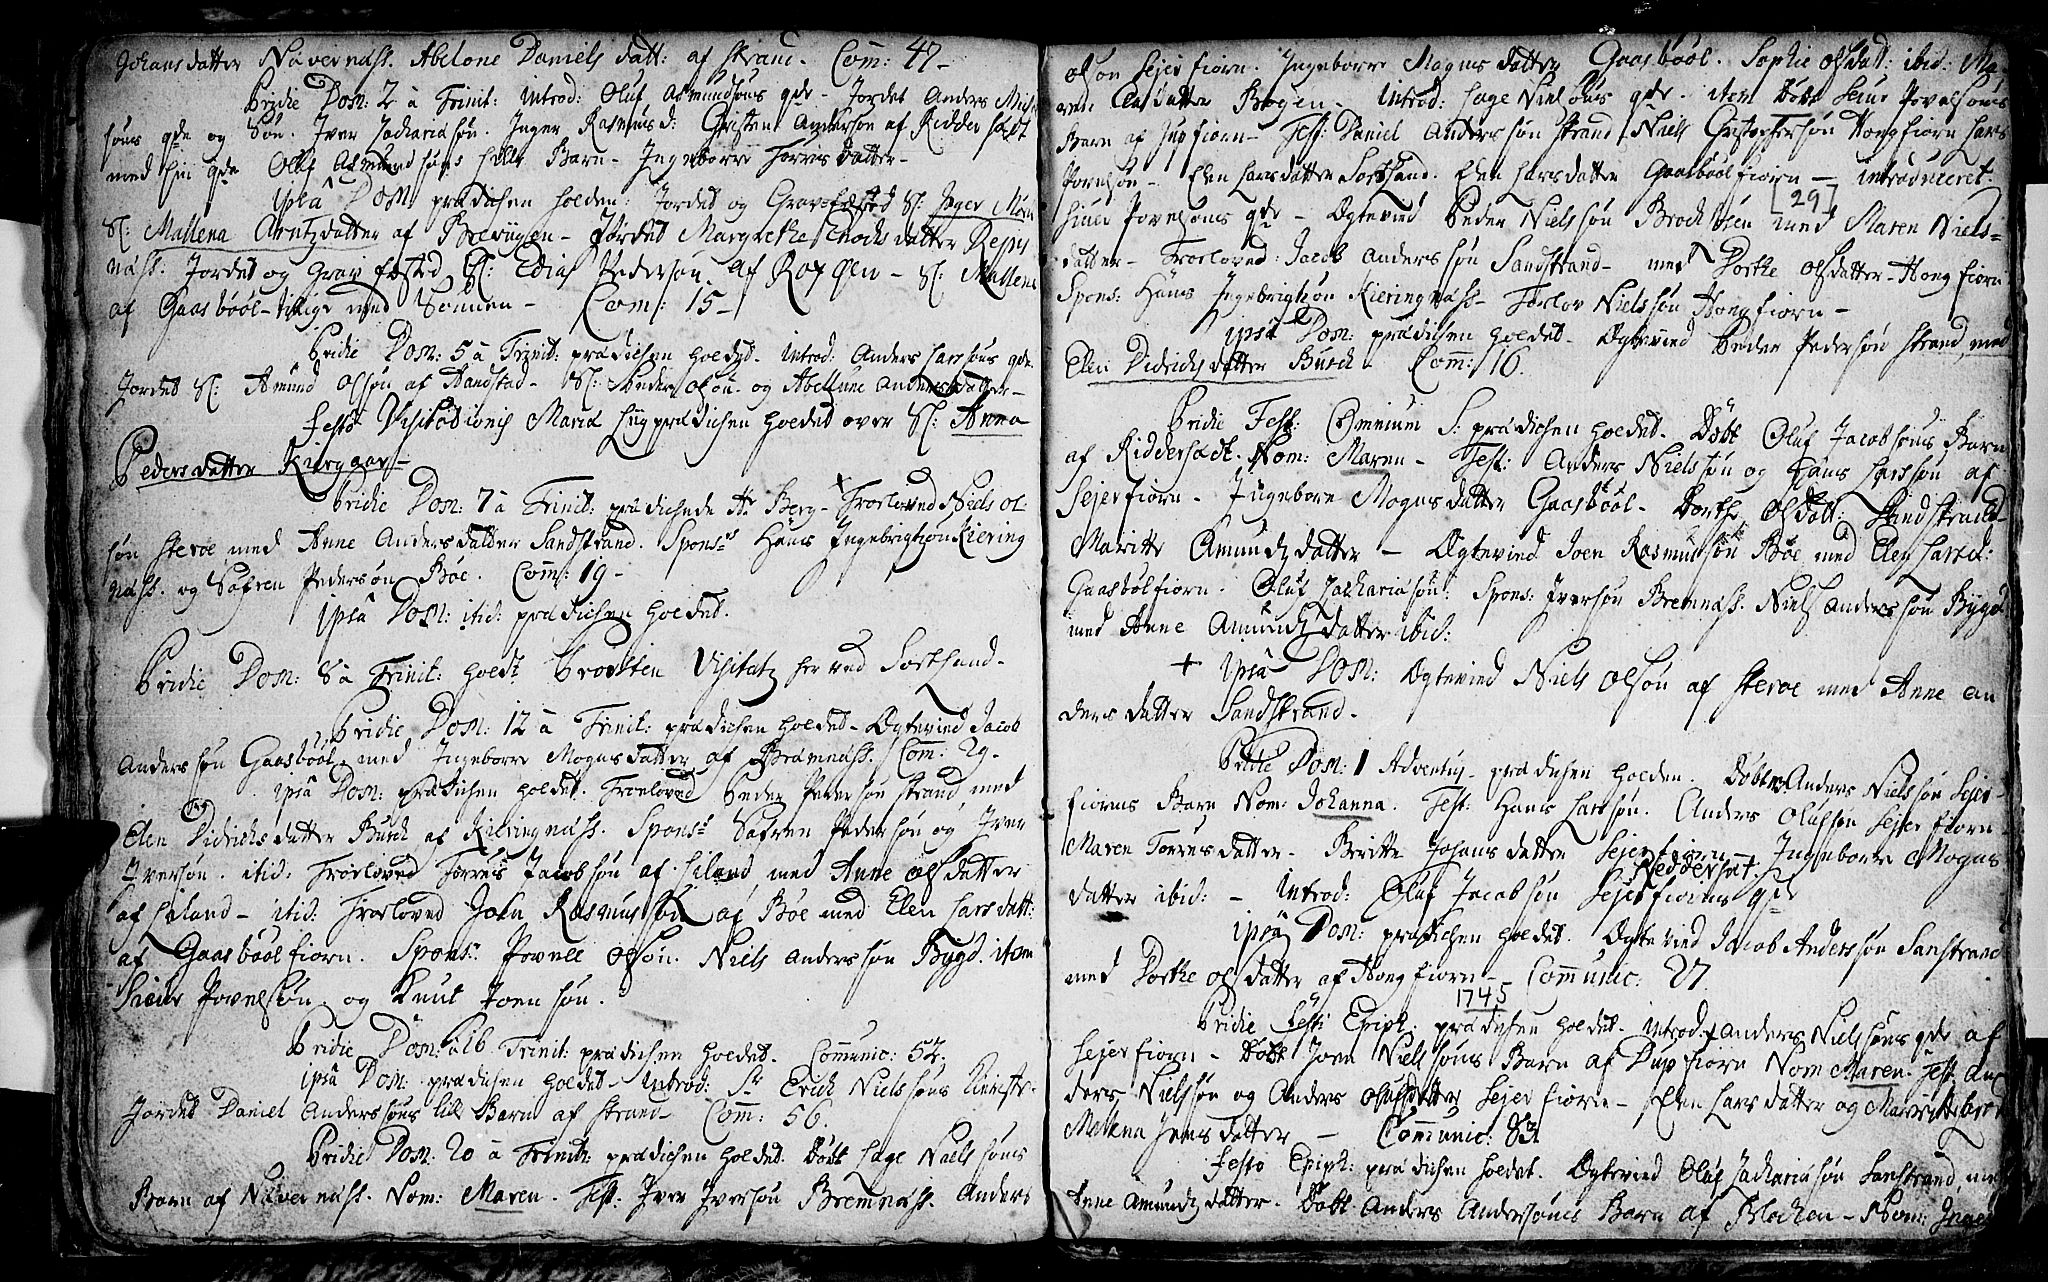 Johansdatter Nævernæss. Abelone Daniels datt: af Strand. Com: 47 -
Pridie Dom: 2 à Trinit: Introd: Oluf Asmundsøns qde - Jordet Anders
søns qde og Søn. Iver Zachariasøn. Inger Rasmusd: Christen Andersøn af Riddersædt
med sin qde Oluf Asmundsøns lille Barn - Ingeborre Torrisdatter -
Ipsâ Dom prædichen holden: Jordet og Gravfæsted Sl: Inger
Sl: Mallena Arntzdatter af - Jordet Margrethe Enochsdatter
næss. Jordet og Grav fæsted Sl: Edias Pedersøn af - Sl: Mallena
af Gaasbööl - tillige med Sønnen - Com: 15 -
Pridie Dom: 5 à Trinit: prædichen holdet. Introd: Anders Larssøns qde.
Jordet Sl: Amund Olssøn af Handstad - Sl: Peder Olsøn - og Abellune Andersdatter -
Festo Visitationis Mariæ Liigprædichen holdet over Sl: Anna
Pedersdatter Kiergaar -
Pridie Dom: 7 à Trinit: prædichede Hr Berg - Troeloved Niels Ol-
søn Steroe med Anne Andersdatter Sandstrand. Spons: Hans Ingebrigtsøn Kiering
næss. og Søfren Pedersøn Bøe. Com: 19 -
Ipsâ Dom: itid: prædichen holdet.
Pridie Dom: 8 à Trinit: holdt Provsten Visitatz her ved Sortland -
Pridie Dom: 12 à Trinit: prædichen holdet - Ægtevied Jacob
Anderssøn Gaasbööl, med Ingeborre Mognsdatter af Bremnæss. Com: 29 -
Ipsâ Dom: prædichen holdet. Troeloved Peder Pedersøn Strand, med
Elen Didrichsdatter Burch af Kieringnæss. Spons: Søfren Pedersøn og Iver
Iversøn. itid: Troeloved Torris Jacobsøn af Liland, med Anne Olsdatter
af Liland - itid: Troeloved John Rasmussøn af Bøe med Elen Larsdatt:
af Gaasböölfiorn. Spons: Povell Olsøn. Niels Anderssøn Bygd. item
Siver Povelsøn, og Knut Joensøn.
Pridie Dom: 16 Trinit: prædichen holdet. Communic: 52.
Ipsâ Dom: prædichen holdet - Introd: Sr Erich Nielssøns Kiereste.
Jordet Daniel Anderssøns lill Barn af Strand - Com: 56.
Pridie Dom: 20 à Trinit: prædichen holdet. Döbt Lage Nielssøns
Barn af Nævernæss. Nom: Maren. Test: Iver Iversøn Bremnæss. Anders
Olsøn Sejerfiorn. Ingeborre Mognsdatter Gaasbööl. Sophie Olsdatt: ibid: Ma-
ren Olsdatter Bogen - Introd: Lage Nielsøns qde - item Döbt Siur Povelsøns
Barn af Jupfiorn - Test: Daniel Anderssøn Strand. Niels Christophersøn Hongfiorn Lars
Povelsøn - Elen Larsdatter Sortland. Elen Larsdatter Gaasböölfiorn - introduceret.
[29]
Siuer Povelsøns qde - Ægtevied Peder Nielssøn Brochløen med Maren Niels-
datter - Troeloved: Jacob Anderssøn Sandstrand - med Dorthe Olsdatter - Hongfiorn
Spons: Hans Ingebrigtsøn Kieringnæss - Torlov Nielssøn Hongfiorn -
Ipsâ Dom: prædichen holdet. Ægtevied Peder Pedersøn Strand, med
Elen Didrichsdatter Burch - Com: 16.
Pridie Fest: Omnium S: prædichen holdet. Döbt Oluf Jacobsøns Barn
af Riddersædt. Nom: Maren - Test: Anders Nielssøn og Hans Larssøn af
Sejerfiorn - Ingebore Mognsdatter Gaasbööl - Dorthe Olsdatt: Sandstrand -
Maritte Amundzdatter - Ægtevied Joen Rasmussøn Bøe med Elen Larsd:
Gaasbölfiorn. Oluf Zachariasøn. Spons: Iversøn Bremnæss. Niels Anderssøn Bygd
med Anne Amundzdatter ibid:
+ Ipsâ Dom: Ægtevied Niels Olsøn af Steroe med Anne An
dersdatter Sandstrand -
Pridie Dom: 1 Adventus - prædichen holden. Döbt Anders Nielssøn Sejer-
fiorns Barn Nom: Johanna. Test: Hans Larssøn. Anders Olufsøn Sejerfiorn -
Maren Torresdatter - Beritte Johansdatter Sejerfiorn - Ingebore Mogns
Reddersæt.
datter ibid: - Introd: Oluf Jacobsøn Sejerfiorns qde
Ipsâ Dom: prædichen holdet. Ægtevied Jacob Anderssøn Sanstrand
med Dorthe Olsdatter af Hongfiorn - Communic: 27
1745
Pridie Festi Epiph: prædichen holdet. Introd: Anders Nielssøns qde af
Sejerfiorn - Döbt Joen Nielssøns Barn af Dupfiorn Nom Maren. Test: An-
ders Nielssøn og Anders Olufsdatter Sejerfiorn - Elen Larsdatter og
Mallena Jensdatter - Communic: 83
Festo Epiph: prædichen holdet. Ægtevied Oluf Zachariasøn Sanstrand, med
Anne Amundzdatter. Döbt Anders Andersøns Barn af Blochen - Nom: